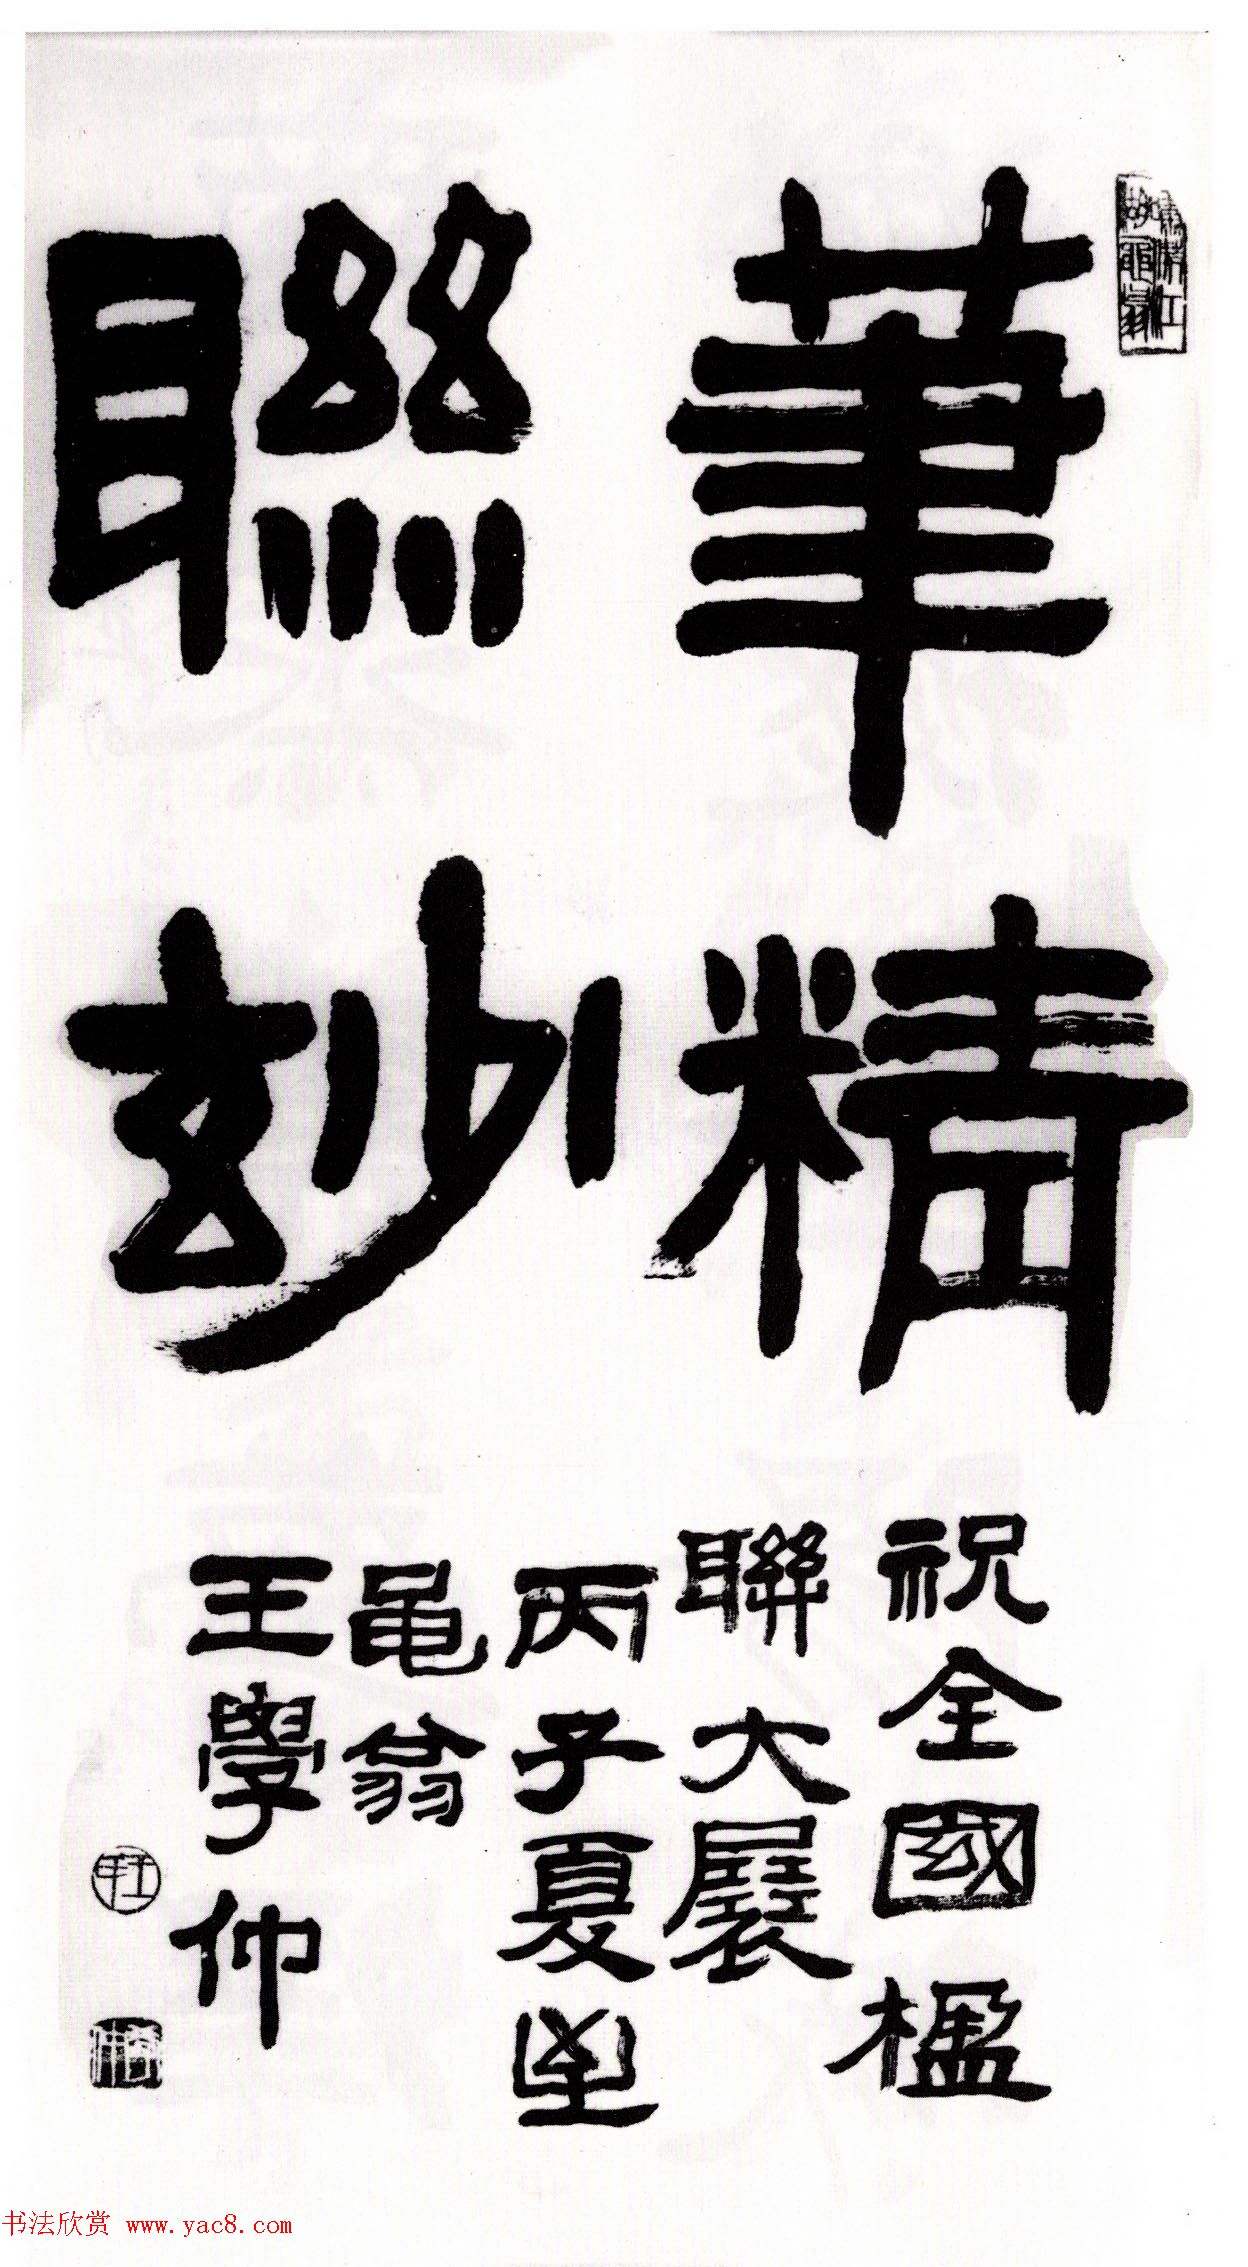 筆精
聯玅
祝全國楹
聯大展
丙子夏
黽翁
王學仲
书法欣赏 www.yac8.com